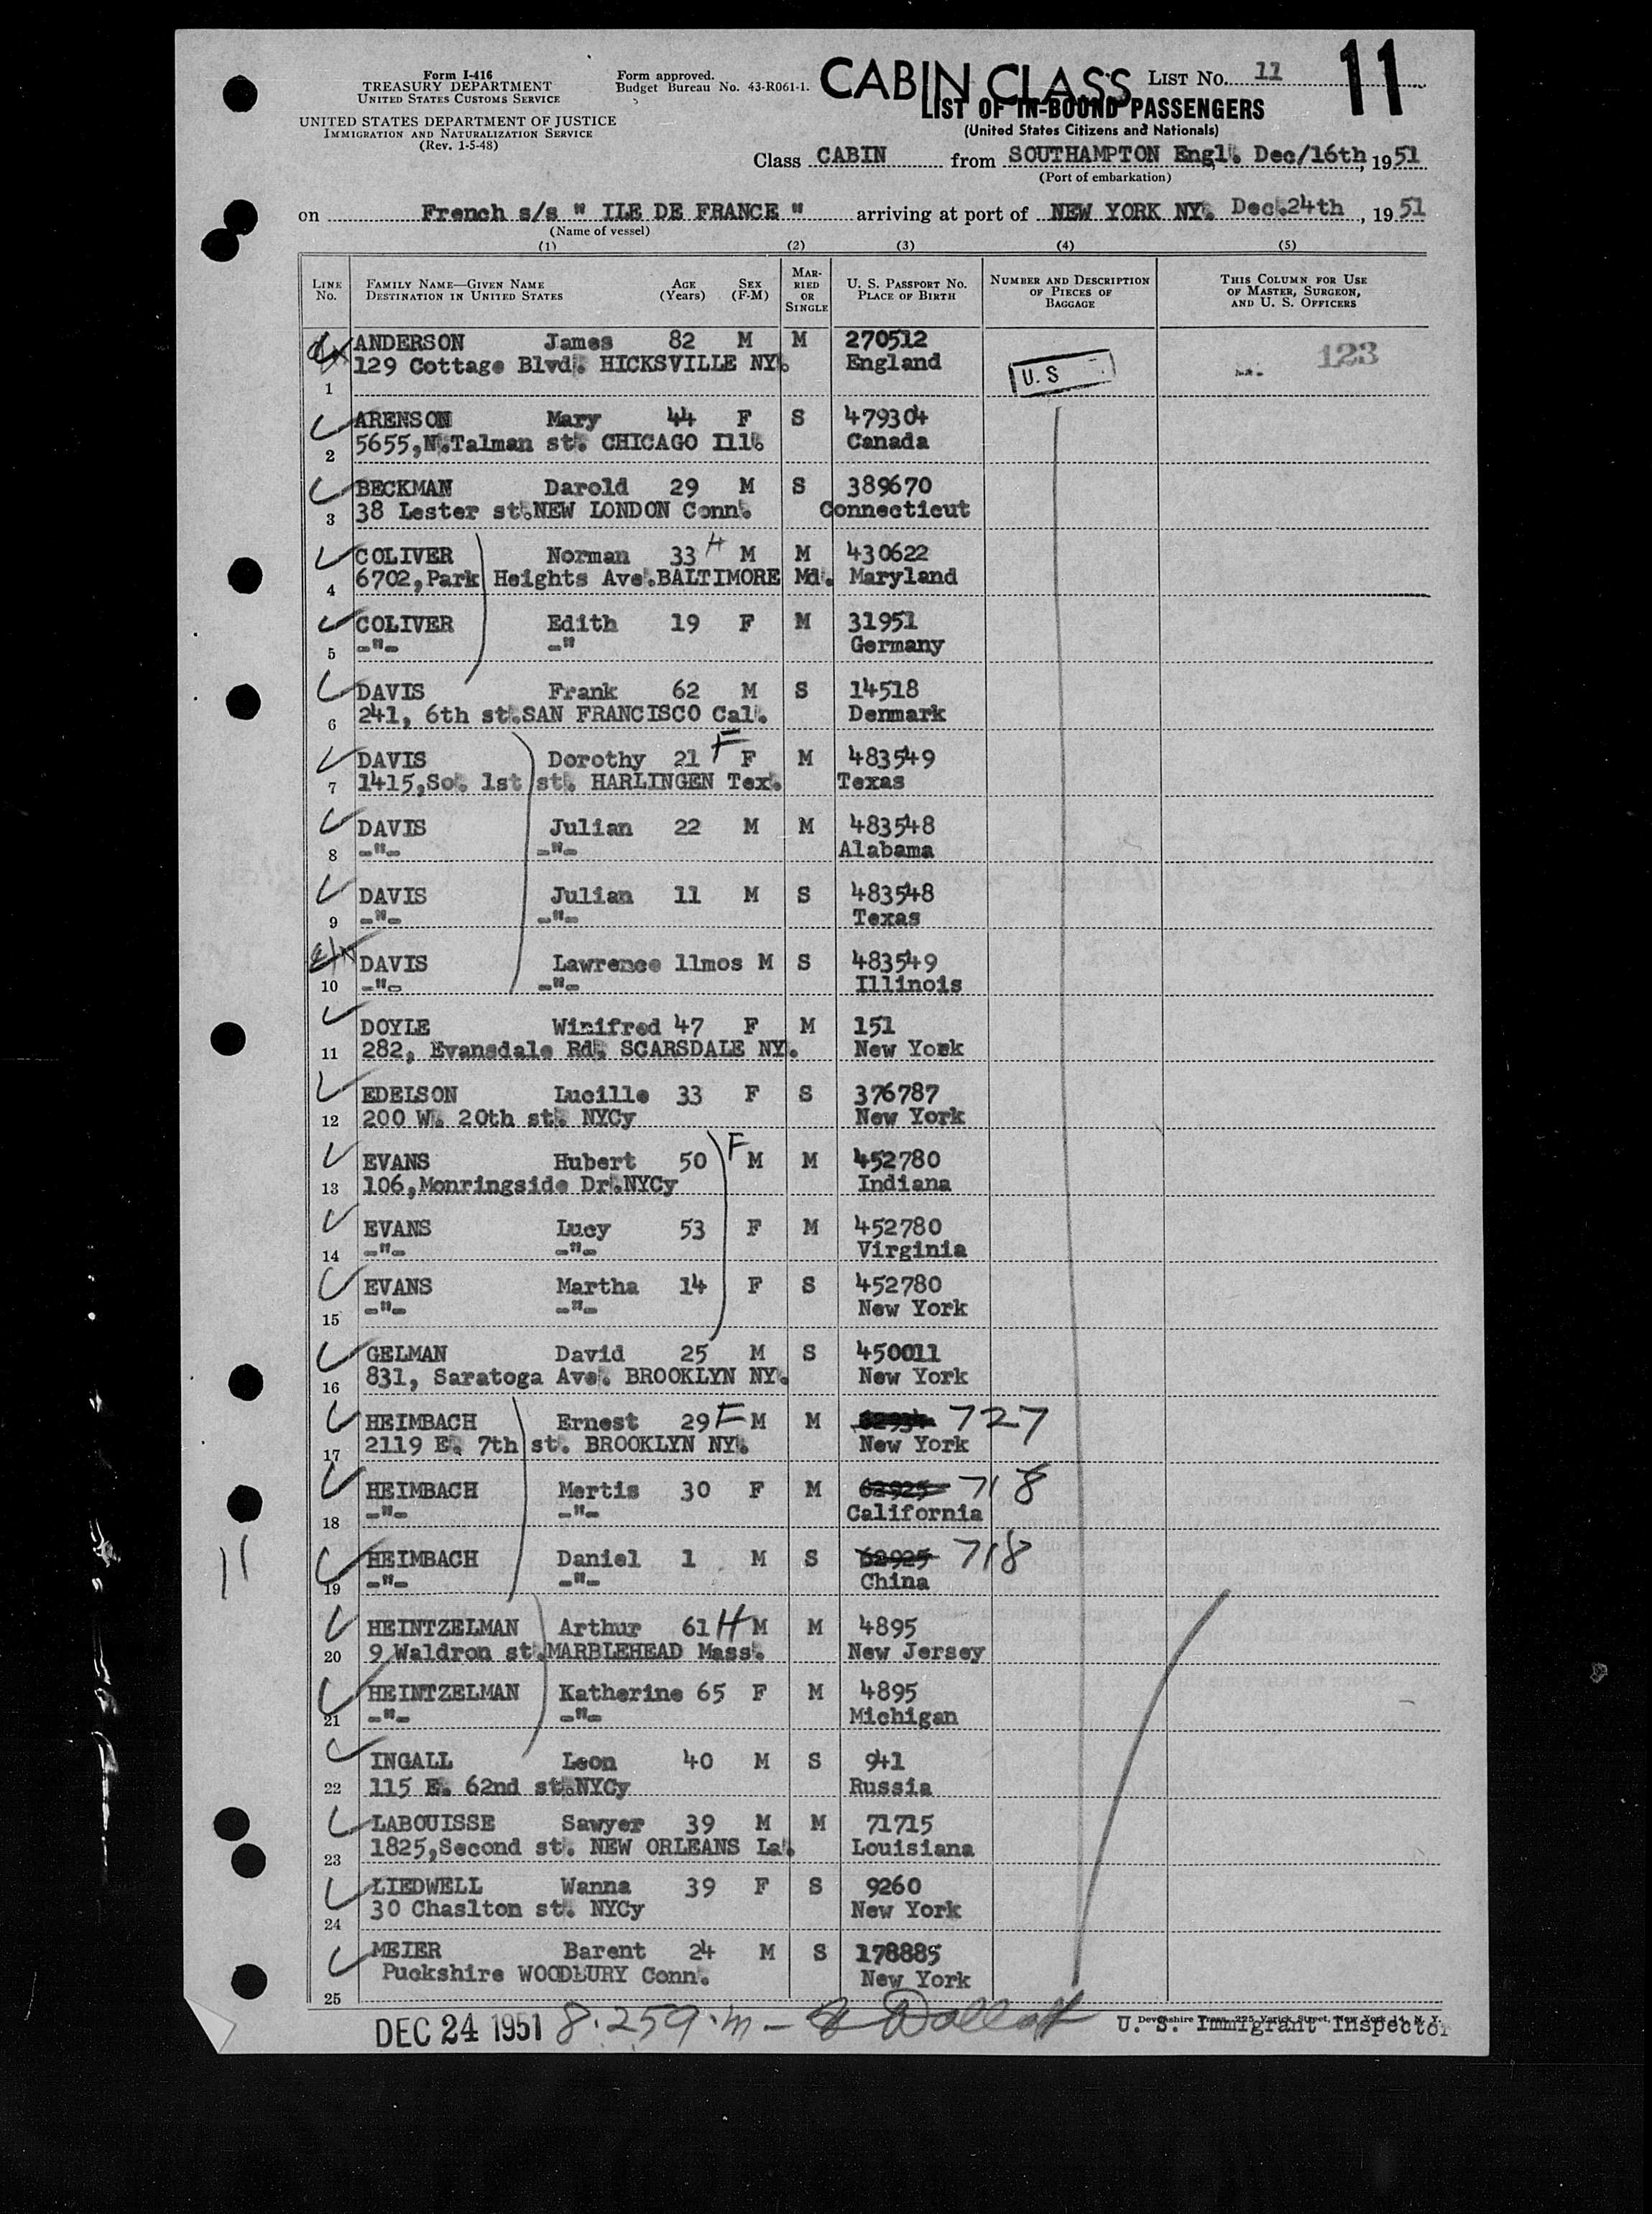 Form I-416
TREASURY DEPARTMENT
UNITED STATES CUSTOMS SERVICE
UNITED STATES DEPARTMENT OF JUSTICE
IMMIGRATION AND NATURALIZATION SERVICE
(Rev. 1-5-48)
Form approved.
Budget Bureau No. 43-R061-1.
CABIN CLASS
LIST NO. 11
11
LIST OF IN-BOUND PASSENGERS
(United States Citizens and Nationals)
Class CABIN from SOUTHAMPTON Engl. Dec/16th, 1951
(Port of embarkation)
on French s/s " ILE DE FRANCE " arriving at port of NEW YORK NY. Dec.24th, 1951
(Name of vessel)
(1) (2) (3) (4) (5)
LINE NO. FAMILY NAME—GIVEN NAME DESTINATION IN UNITED STATES AGE (Years) SEX (F-M) MARRIED OR SINGLE U. S. PASSPORT NO. PLACE OF BIRTH NUMBER AND DESCRIPTION OF PIECES OF BAGGAGE THIS COLUMN FOR USE OF MASTER, SURGEON, AND U. S. OFFICERS
ANDERSON James 82 M M 270512 123
1 129 Cottage Blvd. HICKSVILLE NY. England U. S
ARENSON Mary 44 F S 479304
2 5655,N.Talman st. CHICAGO Ill. Canada
BECKMAN Darold 29 M S 389670
3 38 Lester st.NEW LONDON Conn. Connecticut
COLIVER Norman 33 H M M 430622
4 6702,Park Heights Ave.BALTIMORE Md. Maryland
COLIVER Edith 19 F M 31951
5 -"- -" Germany
DAVIS Frank 62 M S 14518
6 241, 6th st.SAN FRANCISCO Cal. Denmark
DAVIS Dorothy 21 F F M 483549
7 1415,So. 1st st. HARLINGEN Tex. Texas
DAVIS Julian 22 M M 483548
8 -"- -"- Alabama
DAVIS Julian 11 M S 483548
9 -"- -"- Texas
DAVIS Lawrence 11mos M S 483549
10 -"- -"- Illinois
DOYLE Winifred 47 F M 151
11 282, Evansdale Rd. SCARSDALE NY. New York
EDELSON Lucille 33 F S 376787
12 200 W. 20th st. NYCy New York
EVANS Hubert 50 F M M 452780
13 106,Monringside Dr.NYCy Indiana
EVANS Lucy 53 F M 452780
14 -"- -"- Virginia
EVANS Martha 14 F S 452780
15 -"- -"- New York
GELMAN David 25 M S 450011
16 831, Saratoga Ave. BROOKLYN NY. New York
HEIMBACH Ernest 29 F M M 727
17 2119 E. 7th st. BROOKLYN NY. New York
HEIMBACH Mertis 30 F M 62925 718
18 -"- -"- California
HEIMBACH Daniel 1 M S 62925 718
19 -"- -"- China
HEINTZELMAN Arthur 61 H M M 4895
20 9 Waldron st.MARBLEHEAD Mass. New Jersey
HEINTZELMAN Katherine 65 F M 4895
21 -"- -"- Michigan
INGALL Leon 40 M S 941
22 115 E. 62nd st.NYCy Russia
LABOUISSE Sawyer 39 M M 71715
23 1825,Second st. NEW ORLEANS La. Louisiana
LIEDWELL Wanna 39 F S 9260
24 30 Chaslton st. NYCy New York
MEIER Barent 24 M S 178885
25 Puckshire WOODBURY Conn. New York
DEC 24 1951 U. S. Immigrant Inspector
Devonshire Press, 225 Varick Street, New York 14, N. Y.